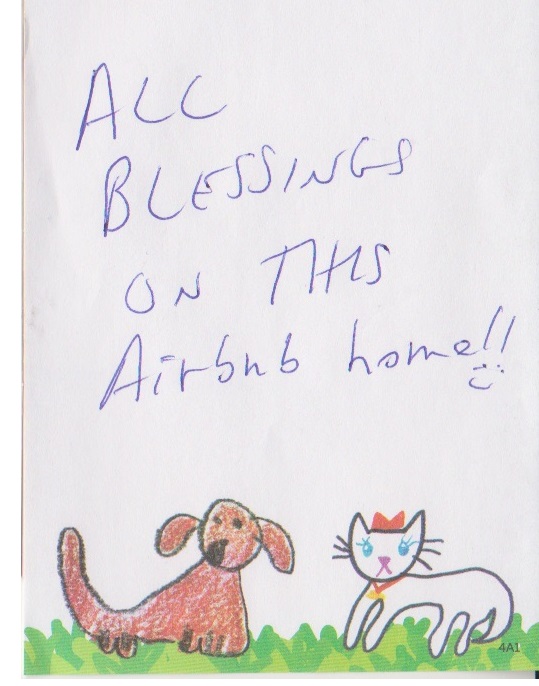 ALL
BLESSINGS
ON THIS
Airbnb home!!
:)
4A1